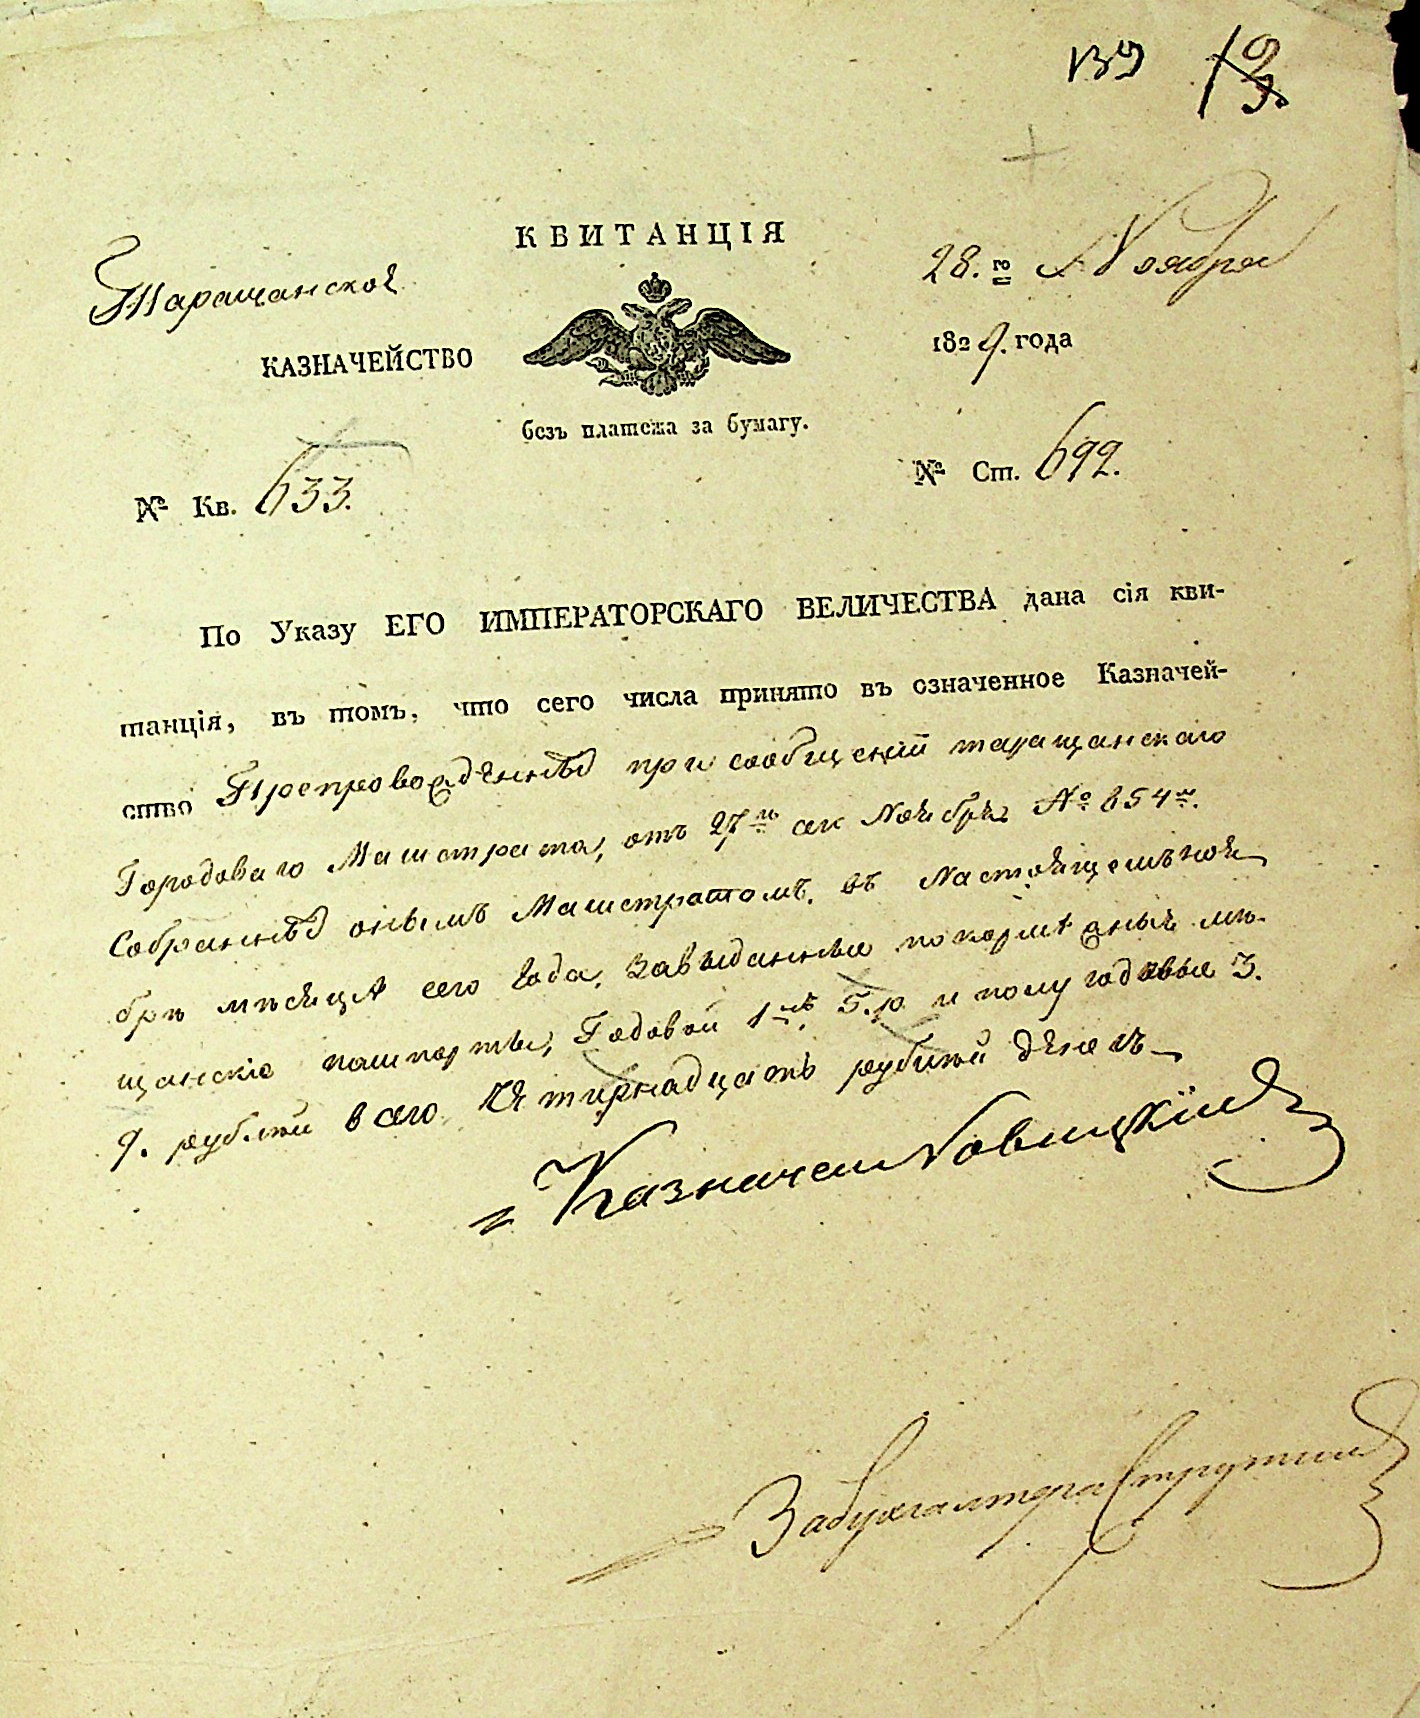 139
КВИТАНЦІЯ
Таращанское
28.го Ноября
КАЗНАЧЕЙСТВО
1829. года
безъ платежа за бумагу.
№ Кв. 633.
№ Ст. 692.
По Указу ЕГО ИМПЕРАТОРСКАГО ВЕЛИЧЕСТВА дана сія кви-
танція, въ томъ, что сего числа принято въ означенное Казначей-
ство Препровожденныя при сообщеніи таращанскаго
Городоваго Магистрата, отъ 27го Ноября № 854м.
Собранныя онымъ Магистратомъ, въ Настоящемъ ноя-
брѣ мѣсяцѣ сего года, За выданные покормежныя мѣ-
щанскіе пашпорты, Годовой 1нъ 5.р и полугодовые 3.
9. рублей всего Четырнадцать рублей денегъ
Казначей Новицкій
За бухгалтера